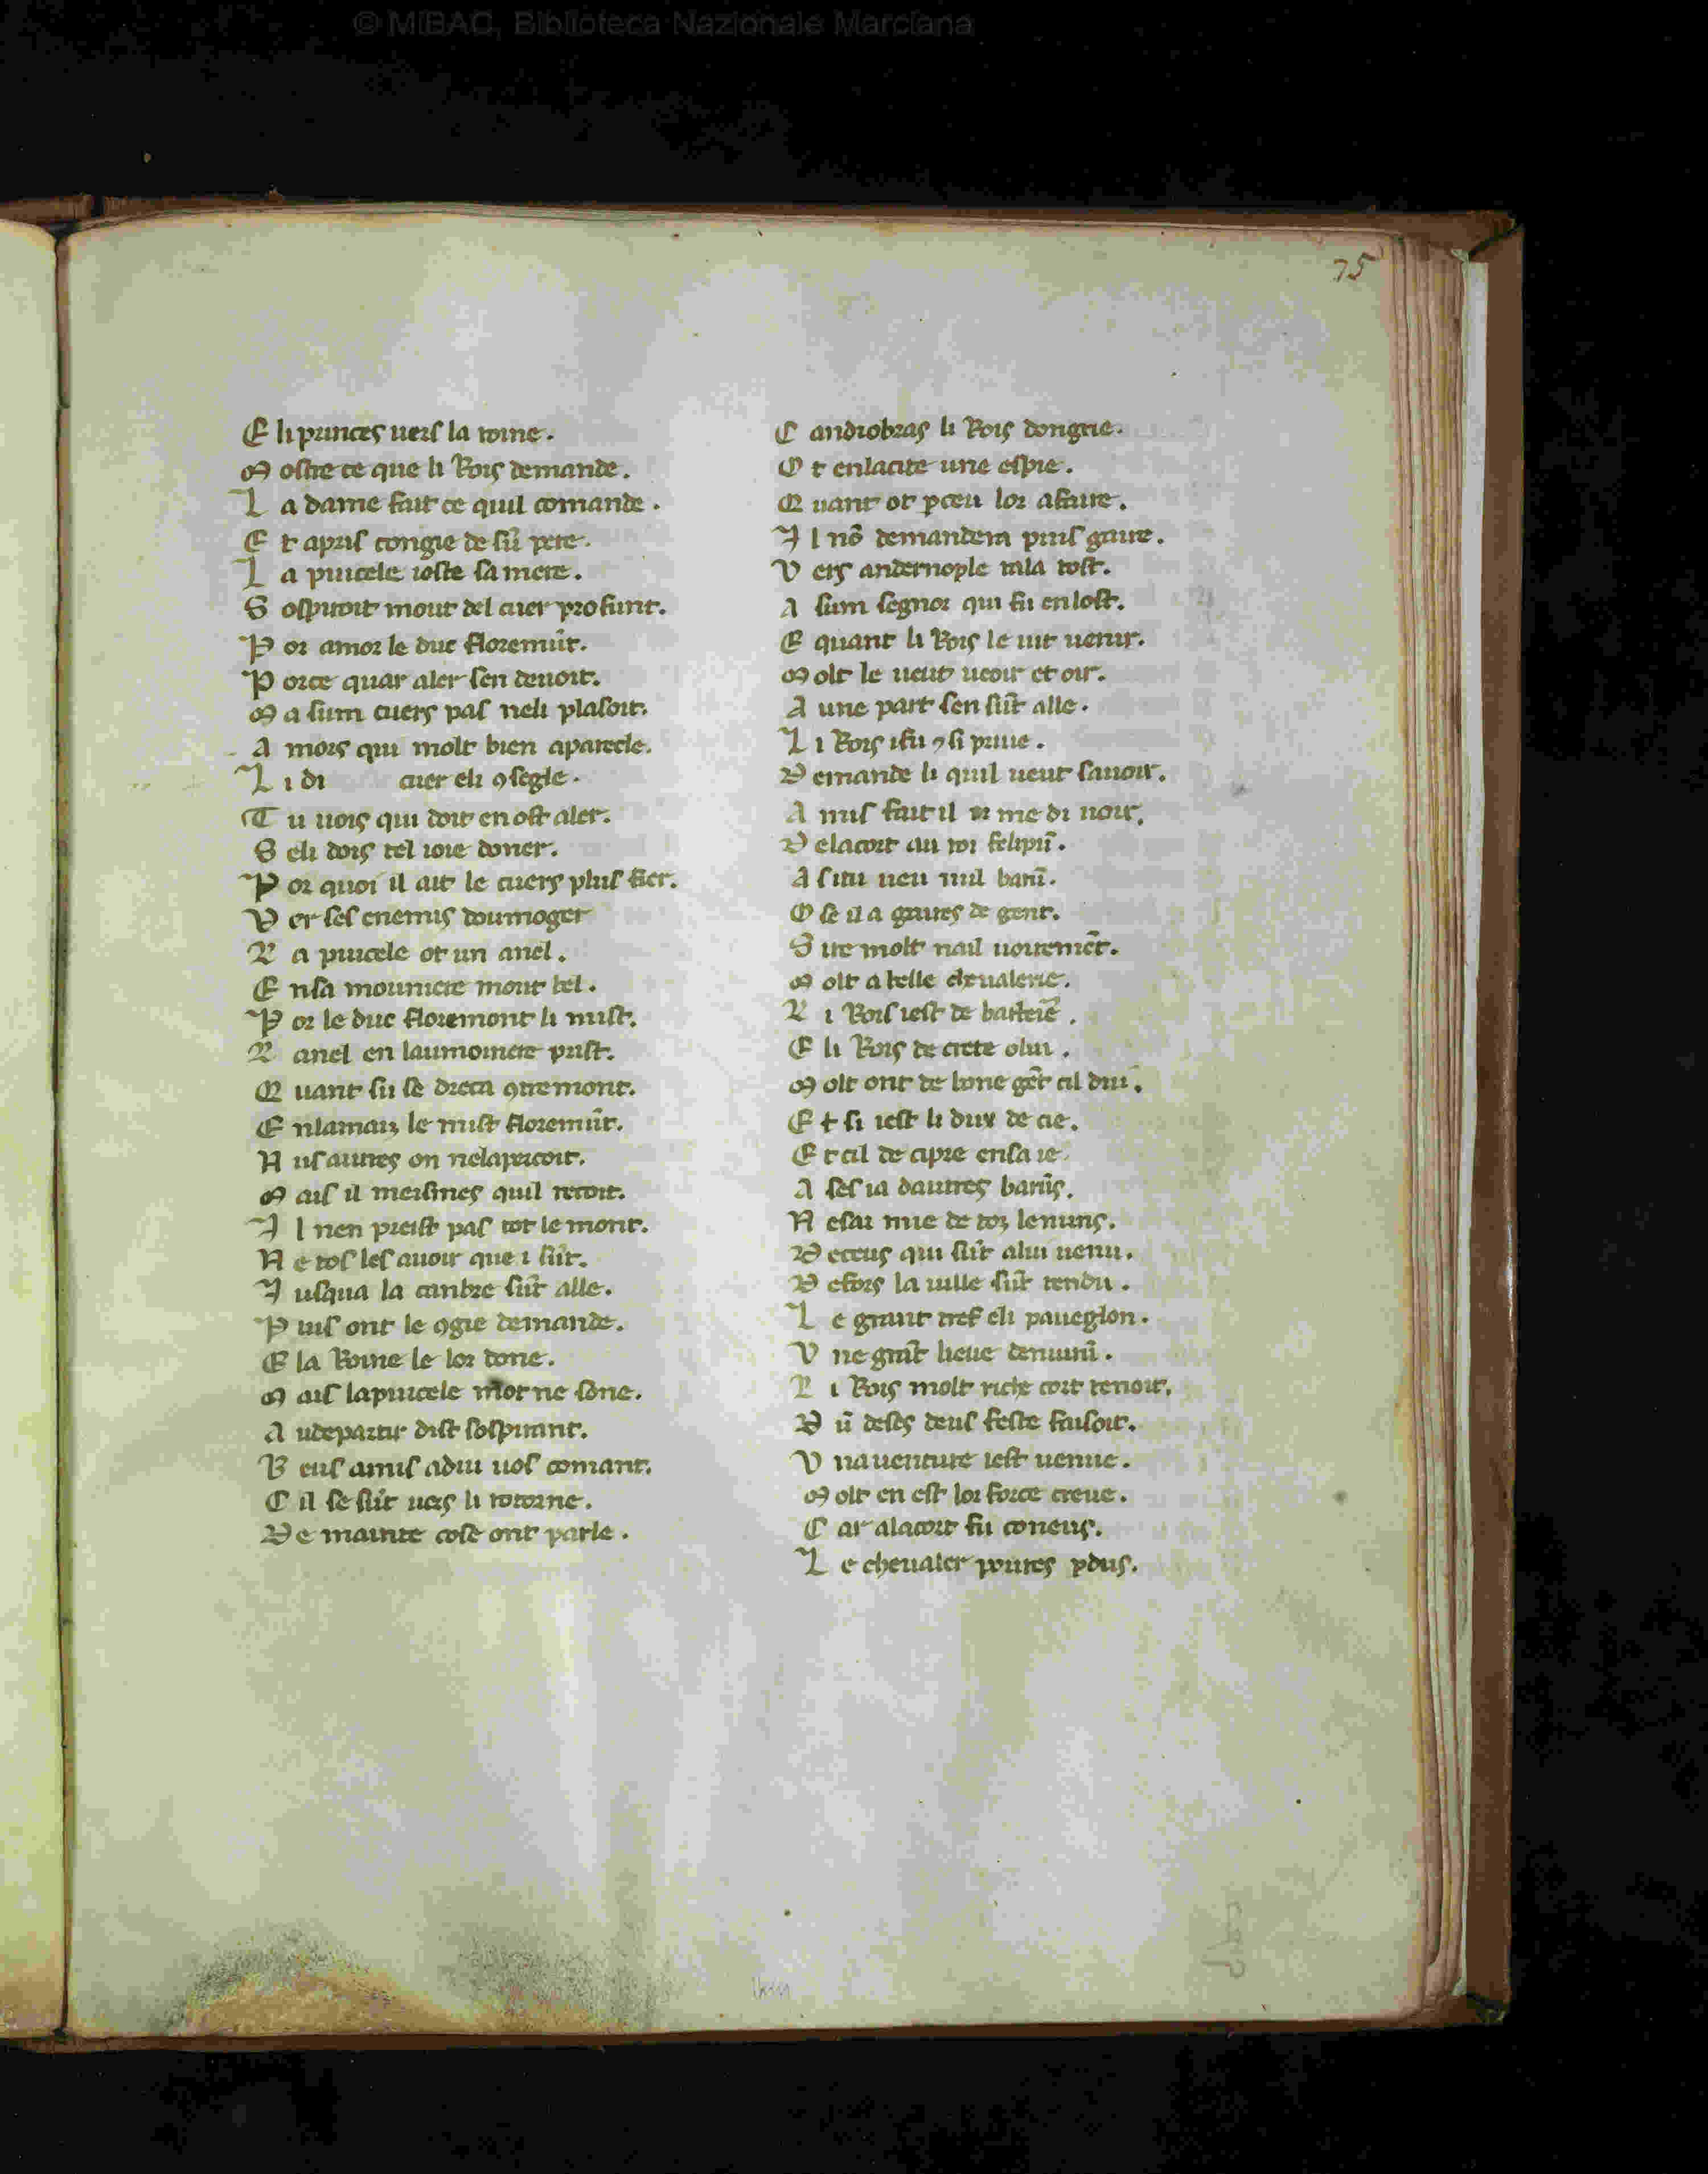 © MiBAC, Biblioteca Nazionale Marciana
75
E li princes uers la roine.
M ostre ce que li Rois demande.
L a dame fait ce quil comande.
E t apris congie de sū pere.
L a pucele ioste sa mere.
S ospiroit mout del cuer profunt.
P or amor le duc floremūt.
P orce quar aler sen deuoit.
M a sum cuers pas neli plasoit.
A mors qui molt bien aparecle.
L i di cuer eli ꝯsegle.
T u uois qui doit en ost aler.
S eli dois tel ioie doner.
P or quoi il ait le cuers plus fier.
V er ses enemis
L a pucele ot un anel.
E nsa moumere mout bel.
P or le duc floremont li mist.
L anel en laumoniere prist.
Q uant su se dreca ꝯtremont.
E nlamaiz le mist floremūt.
N us autres on nelaperceoit.
M ais il meismes quil recoit.
I l nen preist pas tot le mont.
N e tos les auoir que i sūt.
I usqua la canbre sūt alle.
P uis ont le ꝯgie demande.
E la Roine le lor done.
M ais lapucele mot ne sone.
A udepartir dist sospirant.
B eus amis adiu uos comant.
C il se sūt uers li rotorne.
D e mainte cose ont parle.
C andiobras li Rois dongrie.
O t enlacite une espie.
Q uant ot ꝑceu lor afaire.
I l nō demandera puis gaire.
V ers andernople rala tost.
A sum segnor qui fu enlost.
E quant li Rois le uit uenir.
M olt le ueut ueoir et oir.
A une part sen sūt alle.
L i Rois ifu ꝯ si priue.
D emande li quil ueut sauoir.
A mis fait il me di uoir.
D elacort au roi felipū.
A situ ueu nul barū.
O se il a gaires de gent.
S ire molt nail uoiremēt.
M olt a belle cheualerie.
L i Rois iest de
E li Rois de crete olui.
M olt ont de bone gēt cil dui.
E t si iest li dux de cie.
E t cil de cipre ensa ie.
A ses ia dautres barūs.
N esai mie de toz lenuns.
D eceus qui sūt alui uenu.
D efors la uille sūt tendu.
L e grant tref eli paueglon.
V ne grāt lieue
L i Rois molt riche cort tenoit.
D ū deses deus feste faisoit.
V nauenture iest uenue.
M olt en est lor force creue.
C ar alacort fu coneus.
L e cheualer poures ꝑdus.